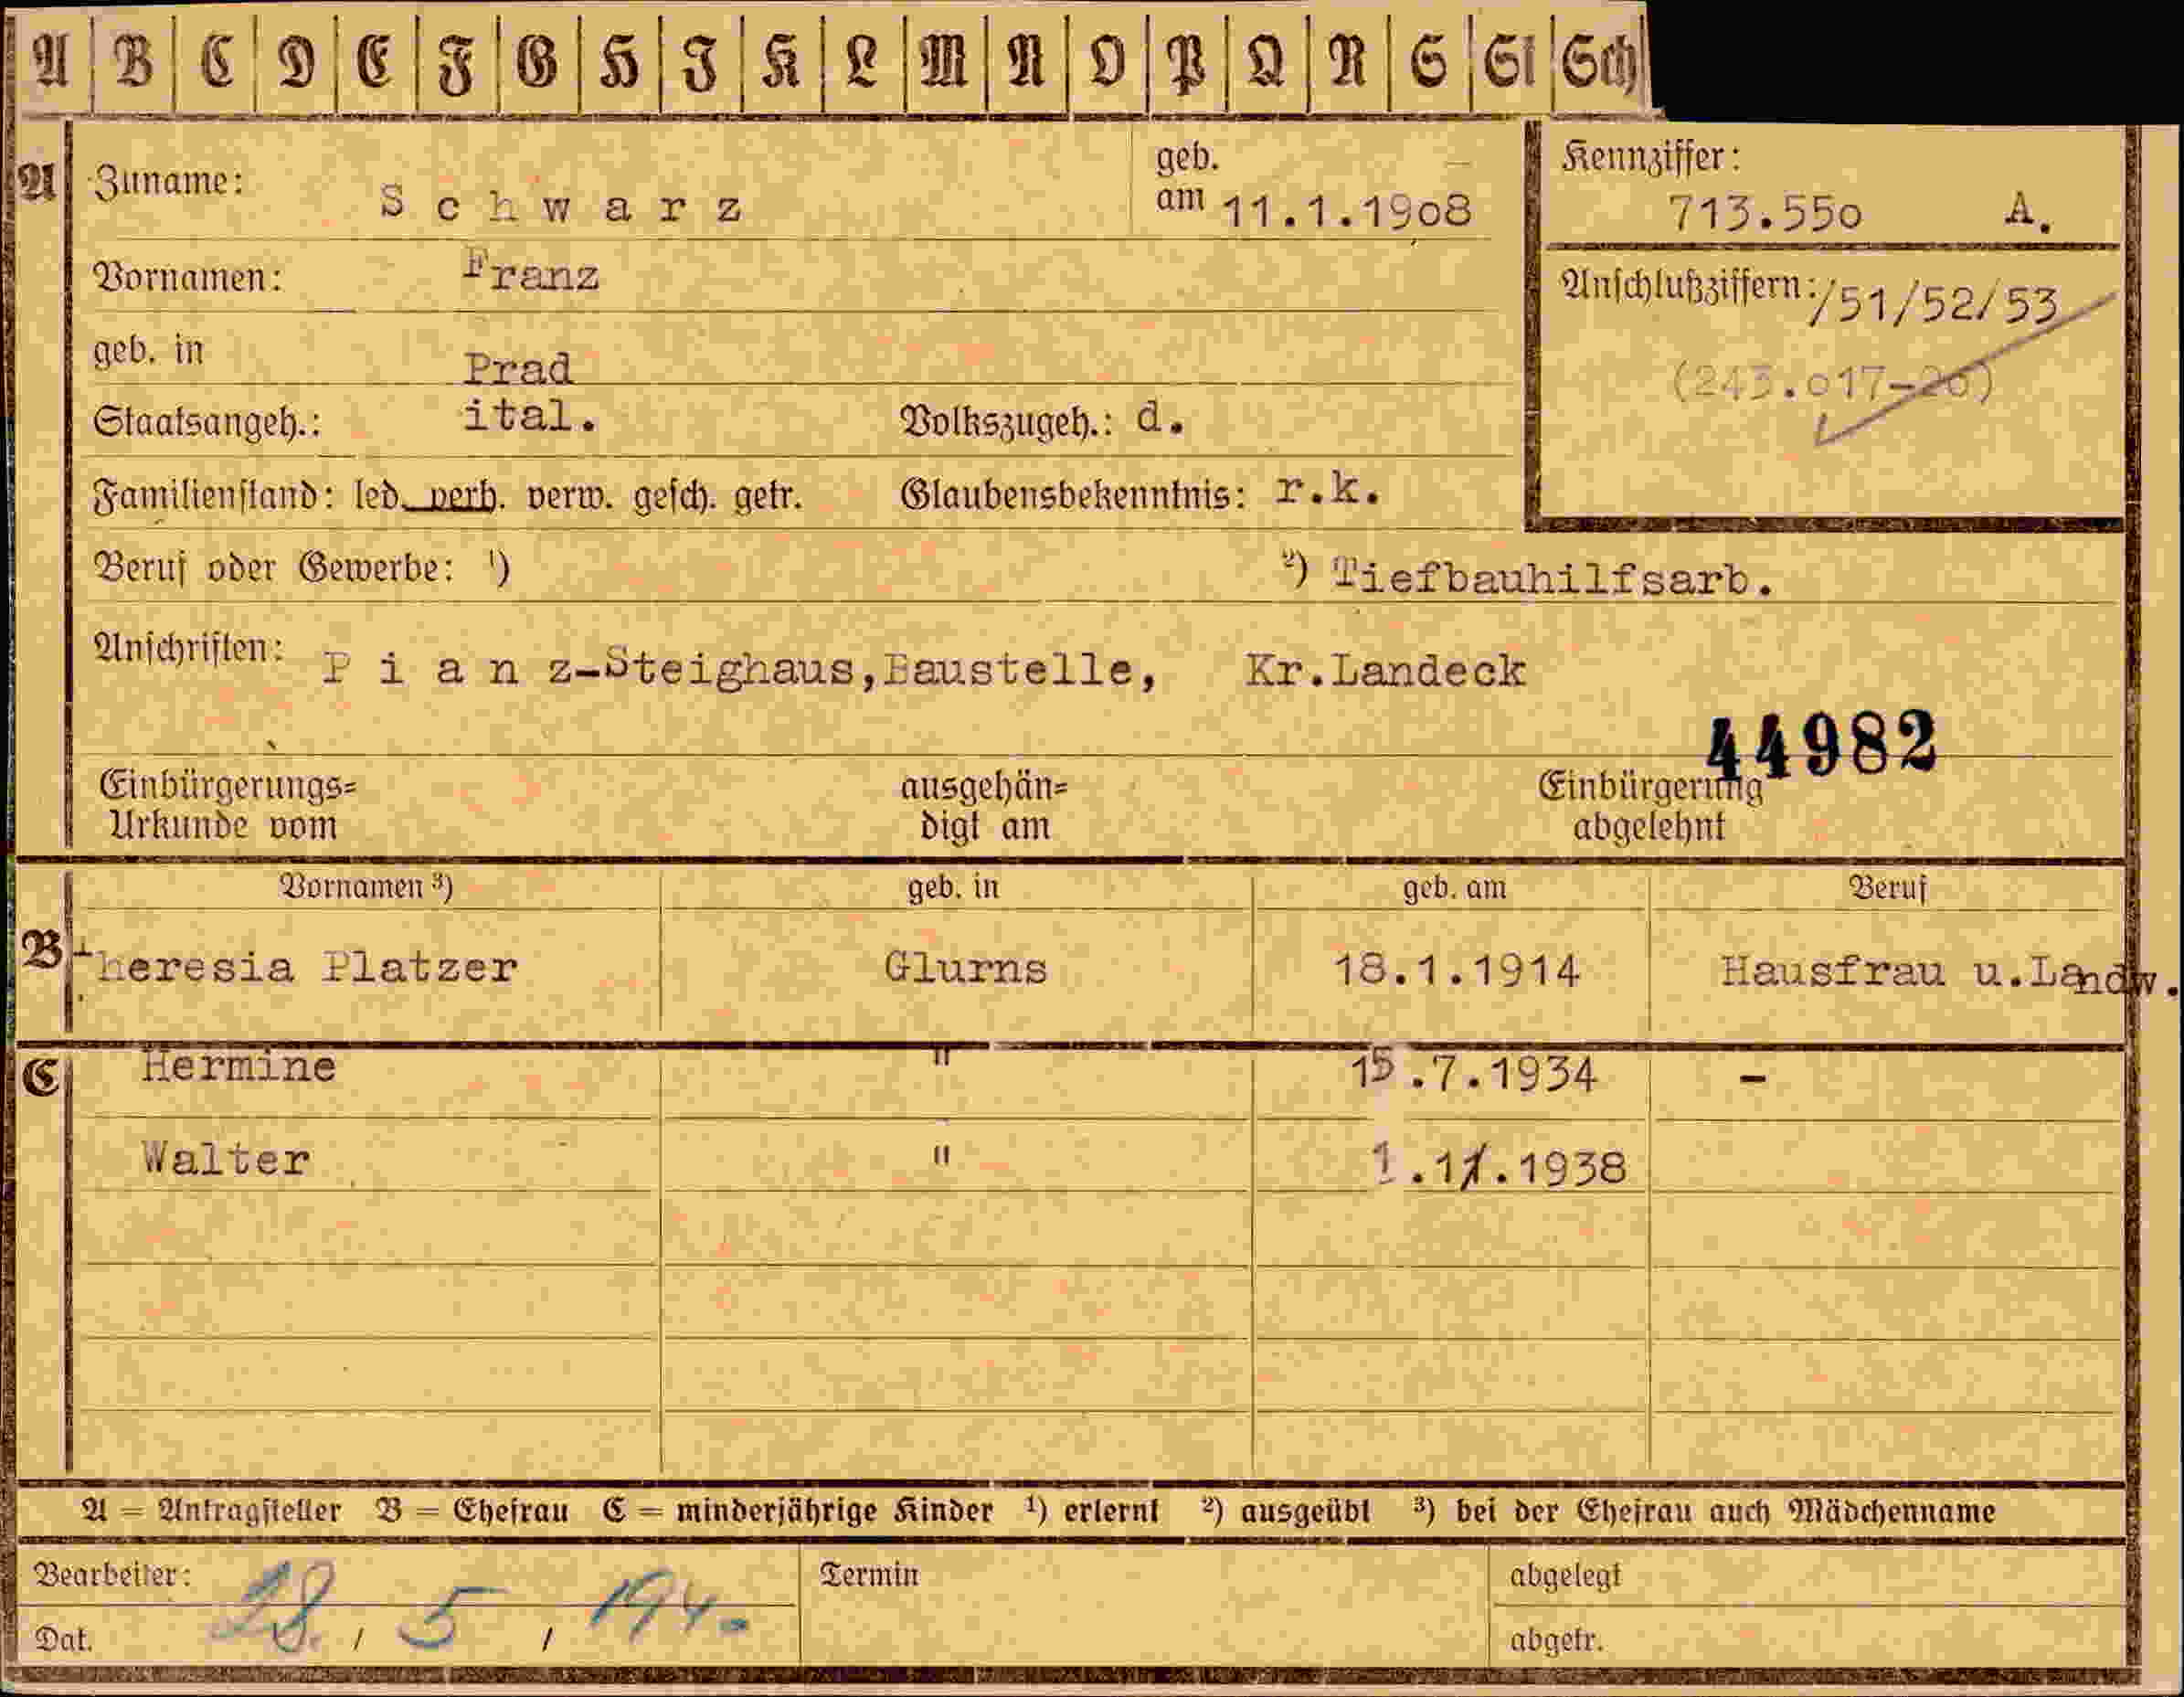 A B C D E F G H I K L M N O P Q R S St Sch
A Zuname: Schwarz geb. am 11.1.1908 Kennziffer: 713.550 A.
Vornamen: Franz
Anschlußziffern: /51/52/53
geb. in Prad
(243.017-20)
Staatsangeh.: ital. Volkszugeh.: d.
Familienstand: led. verh. verw. gesch. getr. Glaubensbekenntnis: r.k.
Beruf oder Gewerbe: ¹) ²) Tiefbauhilfsarb.
Anschriften: Pianz-Steighaus,Baustelle, Kr.Landeck
44982
Einbürgerungs= ausgehän= Einbürgerung
Urkunde vom digt am abgelehnt
Vornamen ³) geb. in geb. am Beruf
B Theresia Platzer Glurns 18.1.1914 Hausfrau u.Landw.
C Hermine " .7.1934 -
Walter " 1.11.1938
A = Antragsteller B = Ehefrau C = minderjährige Kinder ¹) erlernt ²) ausgeübt ³) bei der Ehefrau auch Mädchenname
Bearbeiter: Termin abgelegt
Dat. 28. / 5 / 194. abgetr.